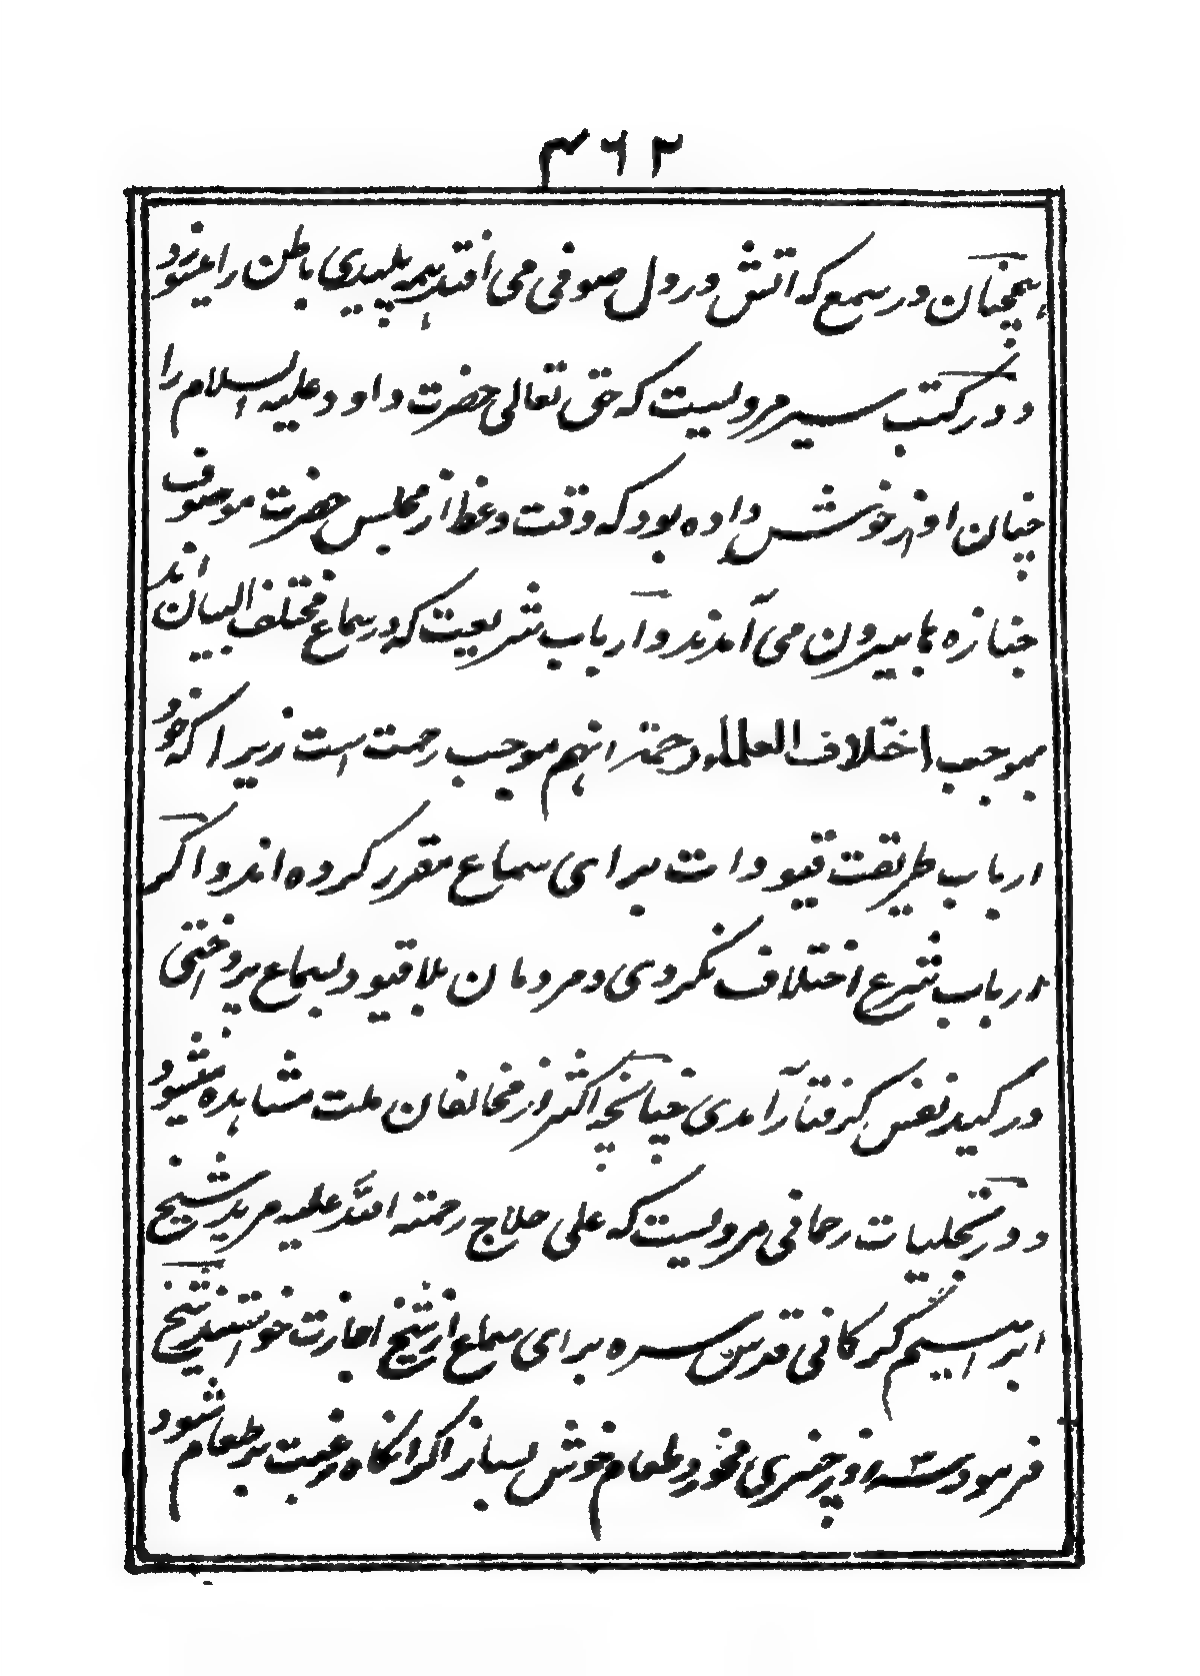 ۲۶۴
همچنان در سمع که آتش در دل صوفی می افتد همه پلیدی باطن را میسوزد
و در کتب سیر مرویست که حق تعالی حضرت داود علیه السلام را
چنان آواز خوش داده بود که وقت وعظ از مجلس حضرت موصوف
جنازه ها بیرون می آمدند و ارباب شریعت که در سماع مختلف البیان اند
بموجب اختلاف العلماء رحمة انهم موجب رحمت است زیرا که خود
ارباب طریقت قیودات برای سماع مقرر کرده اند و اگر
ارباب شرع اختلاف نکردی و مردمان بلا قید و بسماع پرداختی
در کید نفس گرفتار آمدی چنانچه اکثر از مخالفان ملت مشاهده میشود
و در تجلیات رحمانی مرویست که علی حلاج رحمته الله علیه مرید شیخ
ابراهیم گرگانی قدس سره برای سماع از شیخ اجازت خواستند شیخ
فرمود سه روز چیزی مخور و طعام خوش بساز اگر آنگاه رغبت بر طعام شود